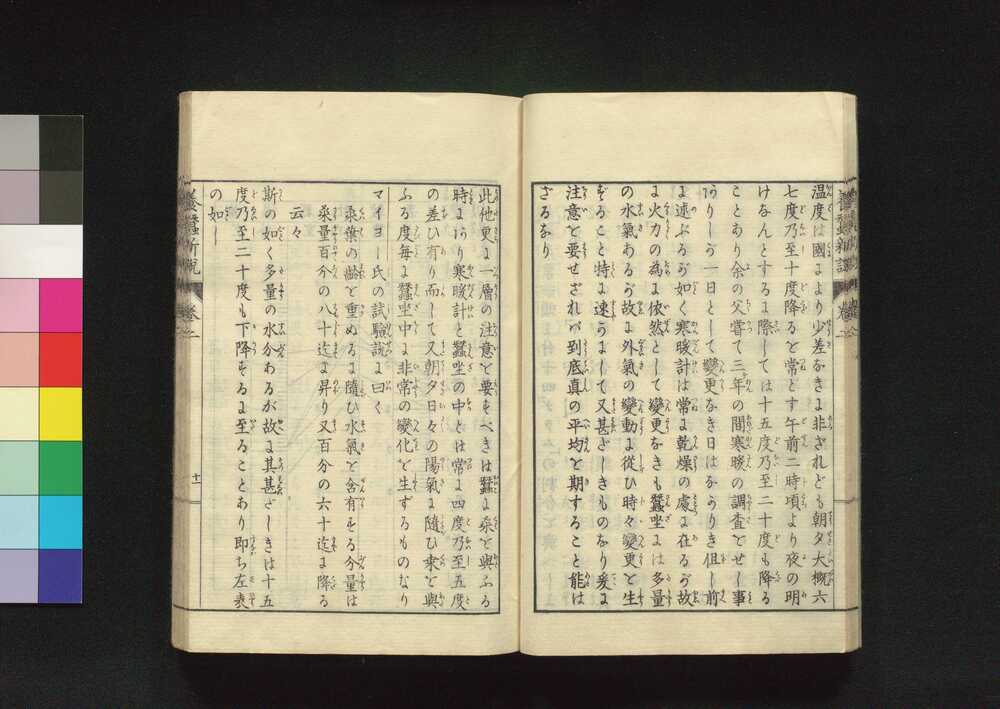 温度は國により少差なきに非ざれども朝夕大概六
七度乃至十度降るを常とす午前二時頃より夜の明
けなんとするに際しては十五度乃至二十度も降る
ことあり余の父嘗て三年の間寒暖の調査をせし事
ありしが一日として變更なき日はなかりき但し前
に述ぶるが如く寒暖計は常に乾燥の處に在るが故
に火力の為に依然として變更なきも蠶坐には多量
の水氣あるが故に外氣の變動に從ひ時々變更を生
ずること特に速かにして又甚だしきものなり爰に
注意を要せざれバ到底真の平均を期すること能は
ざるなり
養蠶新説 卷之一
此他更に一層の注意を要すべきは蠶に桒を與ふる
時にあり寒暖計と蠶坐の中とは常に四度乃至五度
の差ひ有り而して又朝夕日々の陽氣に隨ひ桒を與
ふる度毎に蠶坐中に非常の變化を生ずるものなり
マイヨー氏の試驗説に曰く
桒葉の齡を重ぬるに隨ひ水氣を含有する分量は
桒量百分の八十迄に昇り又百分の六十迄に降る
云々
斯の如く多量の水分あるが故に其甚だしきは十五
度乃至二十度も下降するに至ることあり即ち左表
の如し
養蠶新説 卷之一 十一